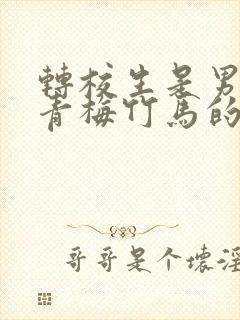 轉校生是男
青梅竹馬的
哥哥是个壞淫